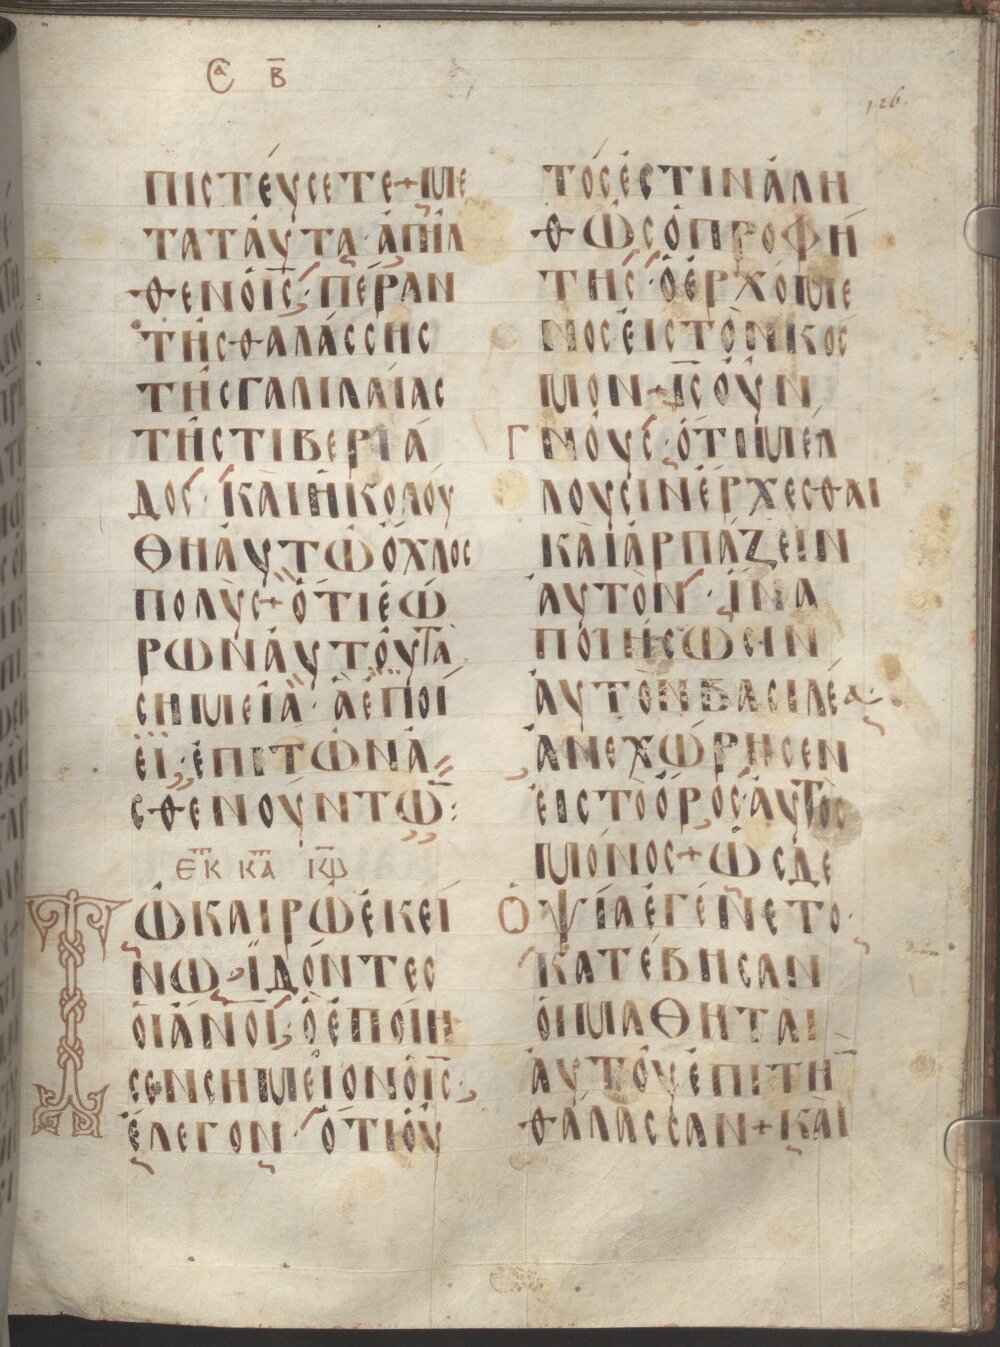 Σα Β
126.
ΠΙCΤΕΥCΕΤΕ+ΜΕ
ΤΑΤΑΥΤΑ·ΑΠΗΛ
ΘΕΝΟΙC·ΠΕΡΑΝ
ΤΗCΘΑΛΑCCΗC
ΤΗCΓΑΛΙΛΑΙΑC
ΤΗCΤΙΒΕΡΙΑ
ΔΟC·ΚΑΙΗΚΟΛΟΥ
ΘΗΑΥΤΩΟΧΛΟC
ΠΟΛΥC+ΟΤΙΕΩ
ΡΩΝΑΥΤΟΥΤΑ
CΗΜΕΙΑ·ΑΕΠΟΙ
ΕΙ·ΕΠΙΤΩΝΑ
CΘΕΝΟΥΝΤΩ:
ΕΚ ΚΑ ΙΩ
ΤΩΚΑΙΡΩΕΚΕΙ
ΝΩ·ΙΔΟΝΤΕC
ΟΙΑΝΟΙ·ΟΕΠΟΙΗ
CΕΝCΗΜΕΙΟΝΟΙC·
ΕΛΕΓΟΝ·ΟΤΙΟΥ
ΤΟCΕCΤΙΝΑΛΗ
ΘΩCΟΠΡΟΦΗ
ΤΗC·ΟΕΡΧΟΜΕ
ΝΟCΕΙCΤΟΝΚΟC
ΜΟΝ+ΙCΟΥΝ
ΓΝΟΥC·ΟΤΙΜΕΛ
ΛΟΥCΙΝΕΡΧΕCΘΑΙ
ΚΑΙΑΡΠΑΖΕΙΝ
ΑΥΤΟΝ·ΙΝΑ
ΠΟΙΗCΩCΙΝ
ΑΥΤΟΝΒΑCΙΛΕΑ·
ΑΝΕΧΩΡΗCΕΝ
ΕΙCΤΟΟΡΟC·ΑΥΤΟC
ΜΟΝΟC+ΩCΔΕ
ΟΨΙΑΕΓΕΝΕΤΟ·
ΚΑΤΕΒΗCΑΝ
ΟΙΜΑΘΗΤΑΙ
ΑΥΤΟΥΕΠΙΤΗ
ΘΑΛΑCCΑΝ+ΚΑΙ